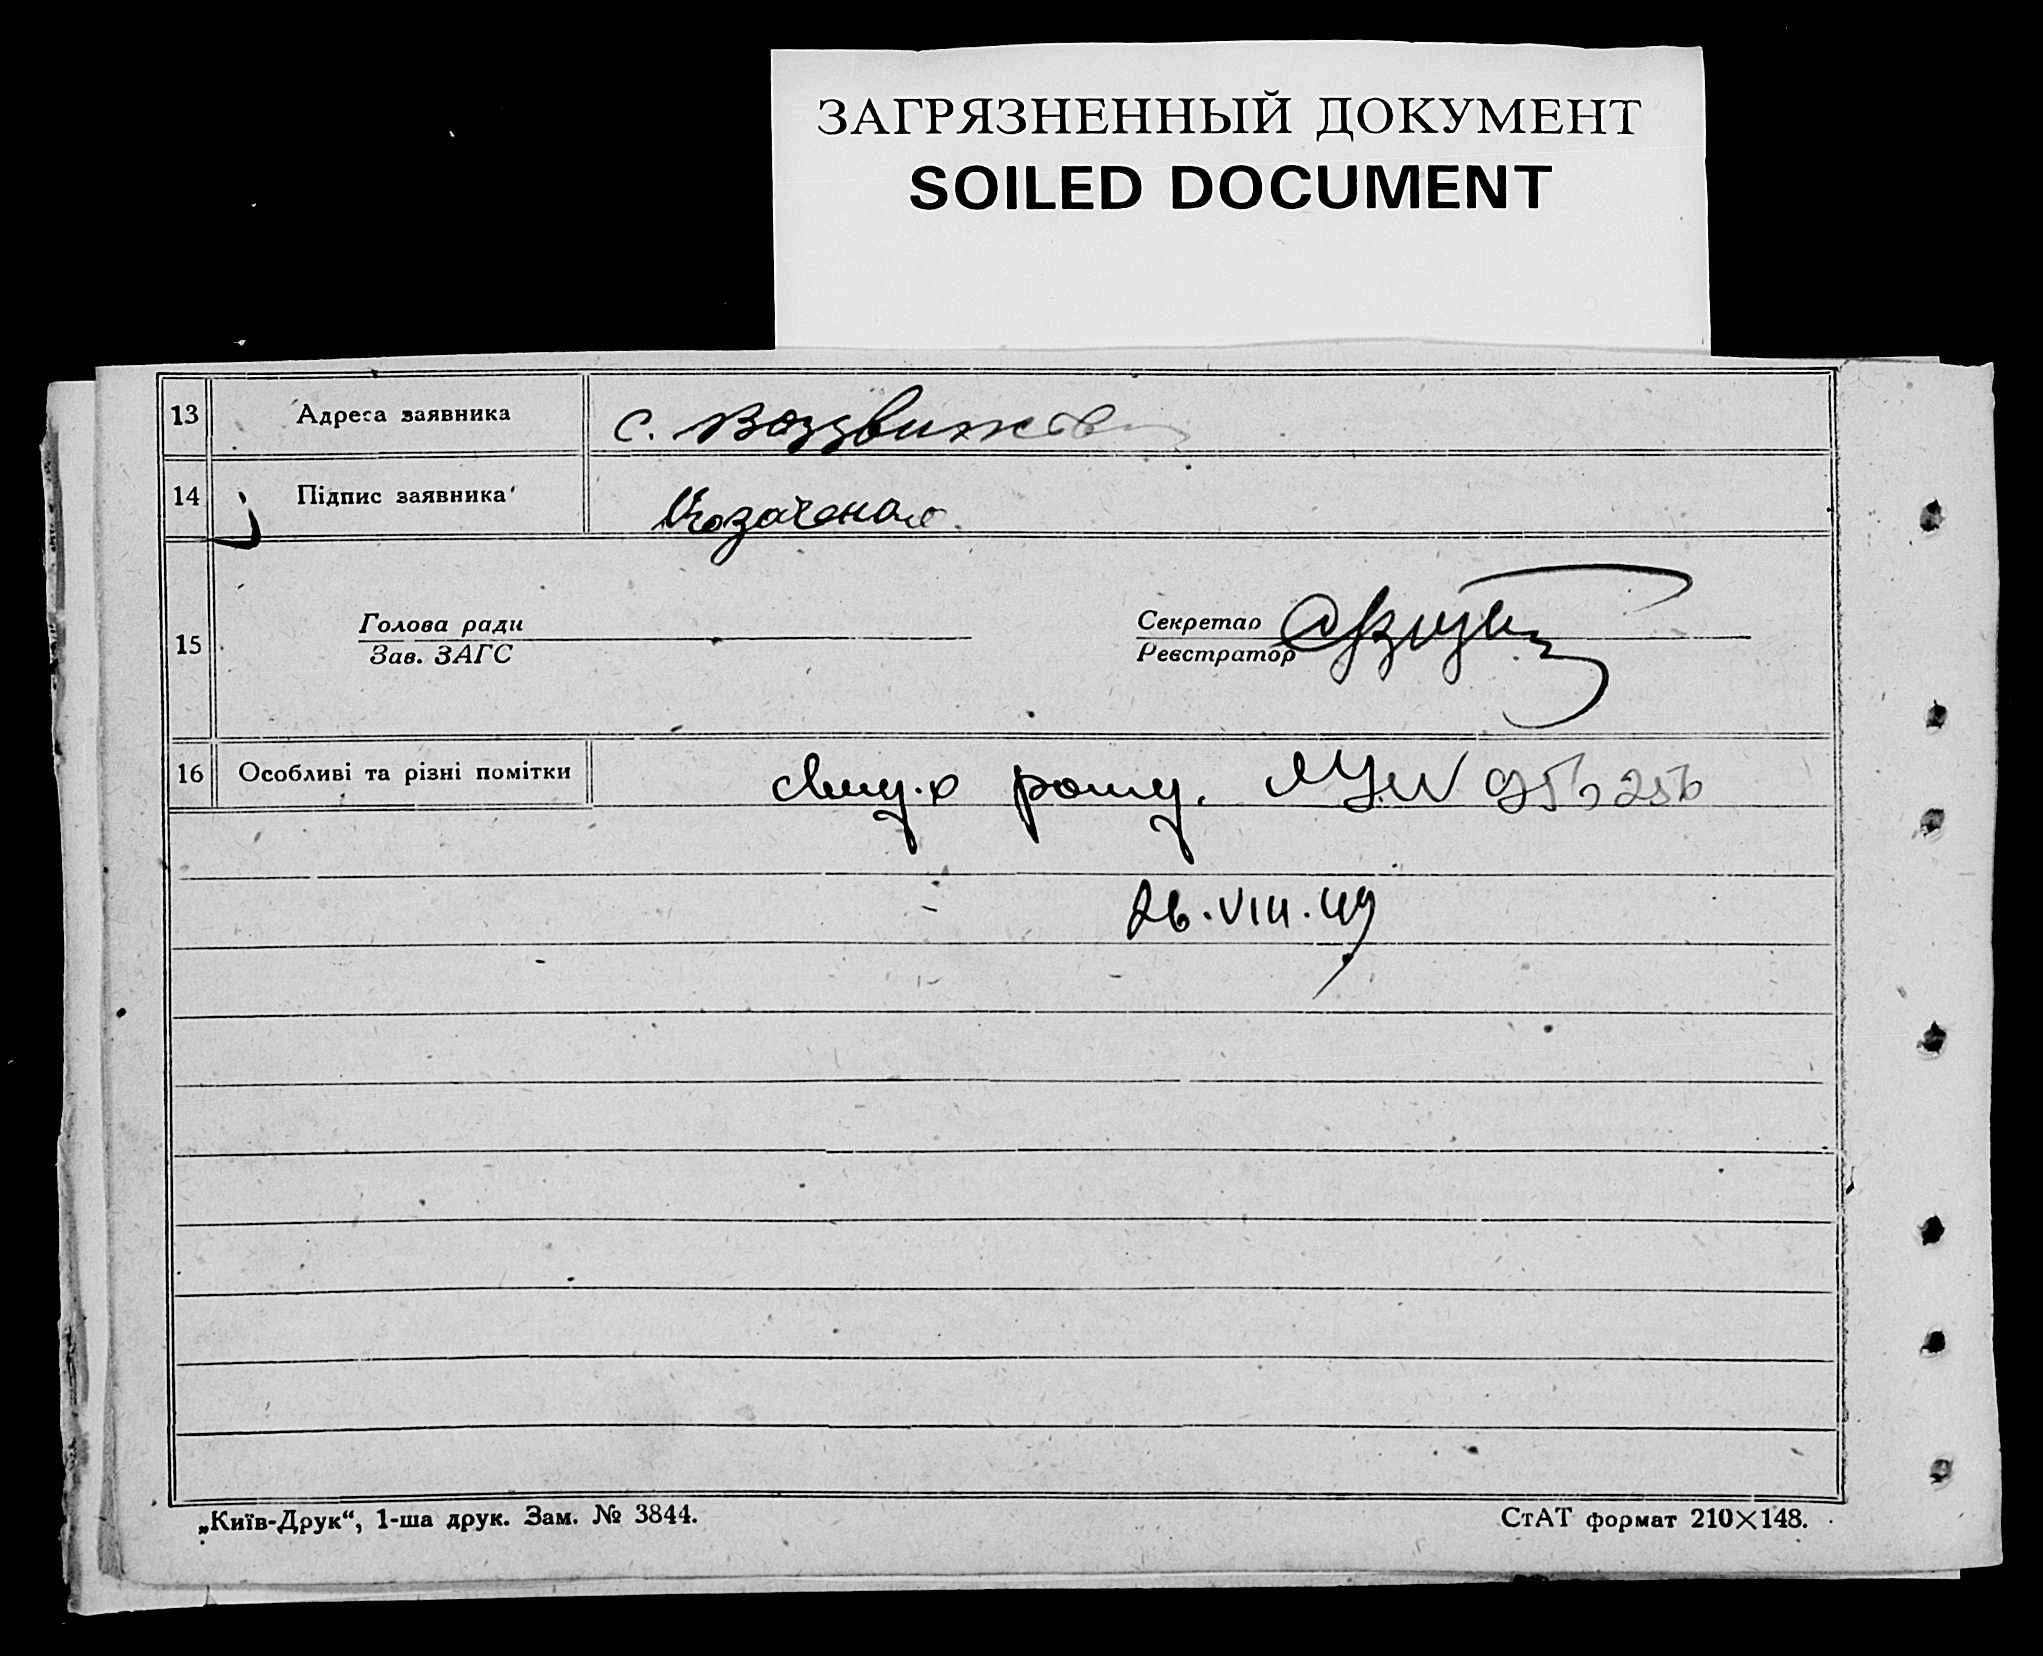 ЗАГРЯЗНЕННЫЙ ДОКУМЕНТ
SOILED DOCUMENT
13 Адреса заявника с. Воздвижевк
14 Підпис заявника Козаченко
15 Голова ради
Зав. ЗАГС
Секретар
Реєстратор
16 Особливі та різні помітки
26.VIII.49
„Київ-Друк“, 1-ша друк. Зам. № 3844.
СтАТ формат 210×148.